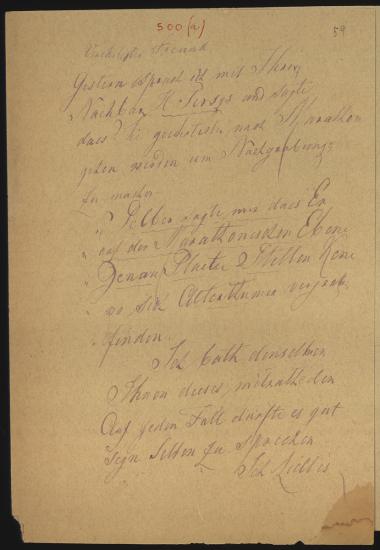 500 (a)
59
Verehrter Freund
Gestern sprach ich mit Ihrem
Nachbar H. und sagte
dass Sie nach Marathon
gehen würden um Nachgrabung
zu machen
" Selber sagte mir dass Er
" auf der Marathonischen Ebene
" genau Plaetze & Stellen Kene
" wo sich Alterthumer vergrab
finden.
Ich bath denselben
Ihnen dieses mitzutheilen
Auf jeden Fall durfte es gut
seyn Selben zu Sprechen
Ich